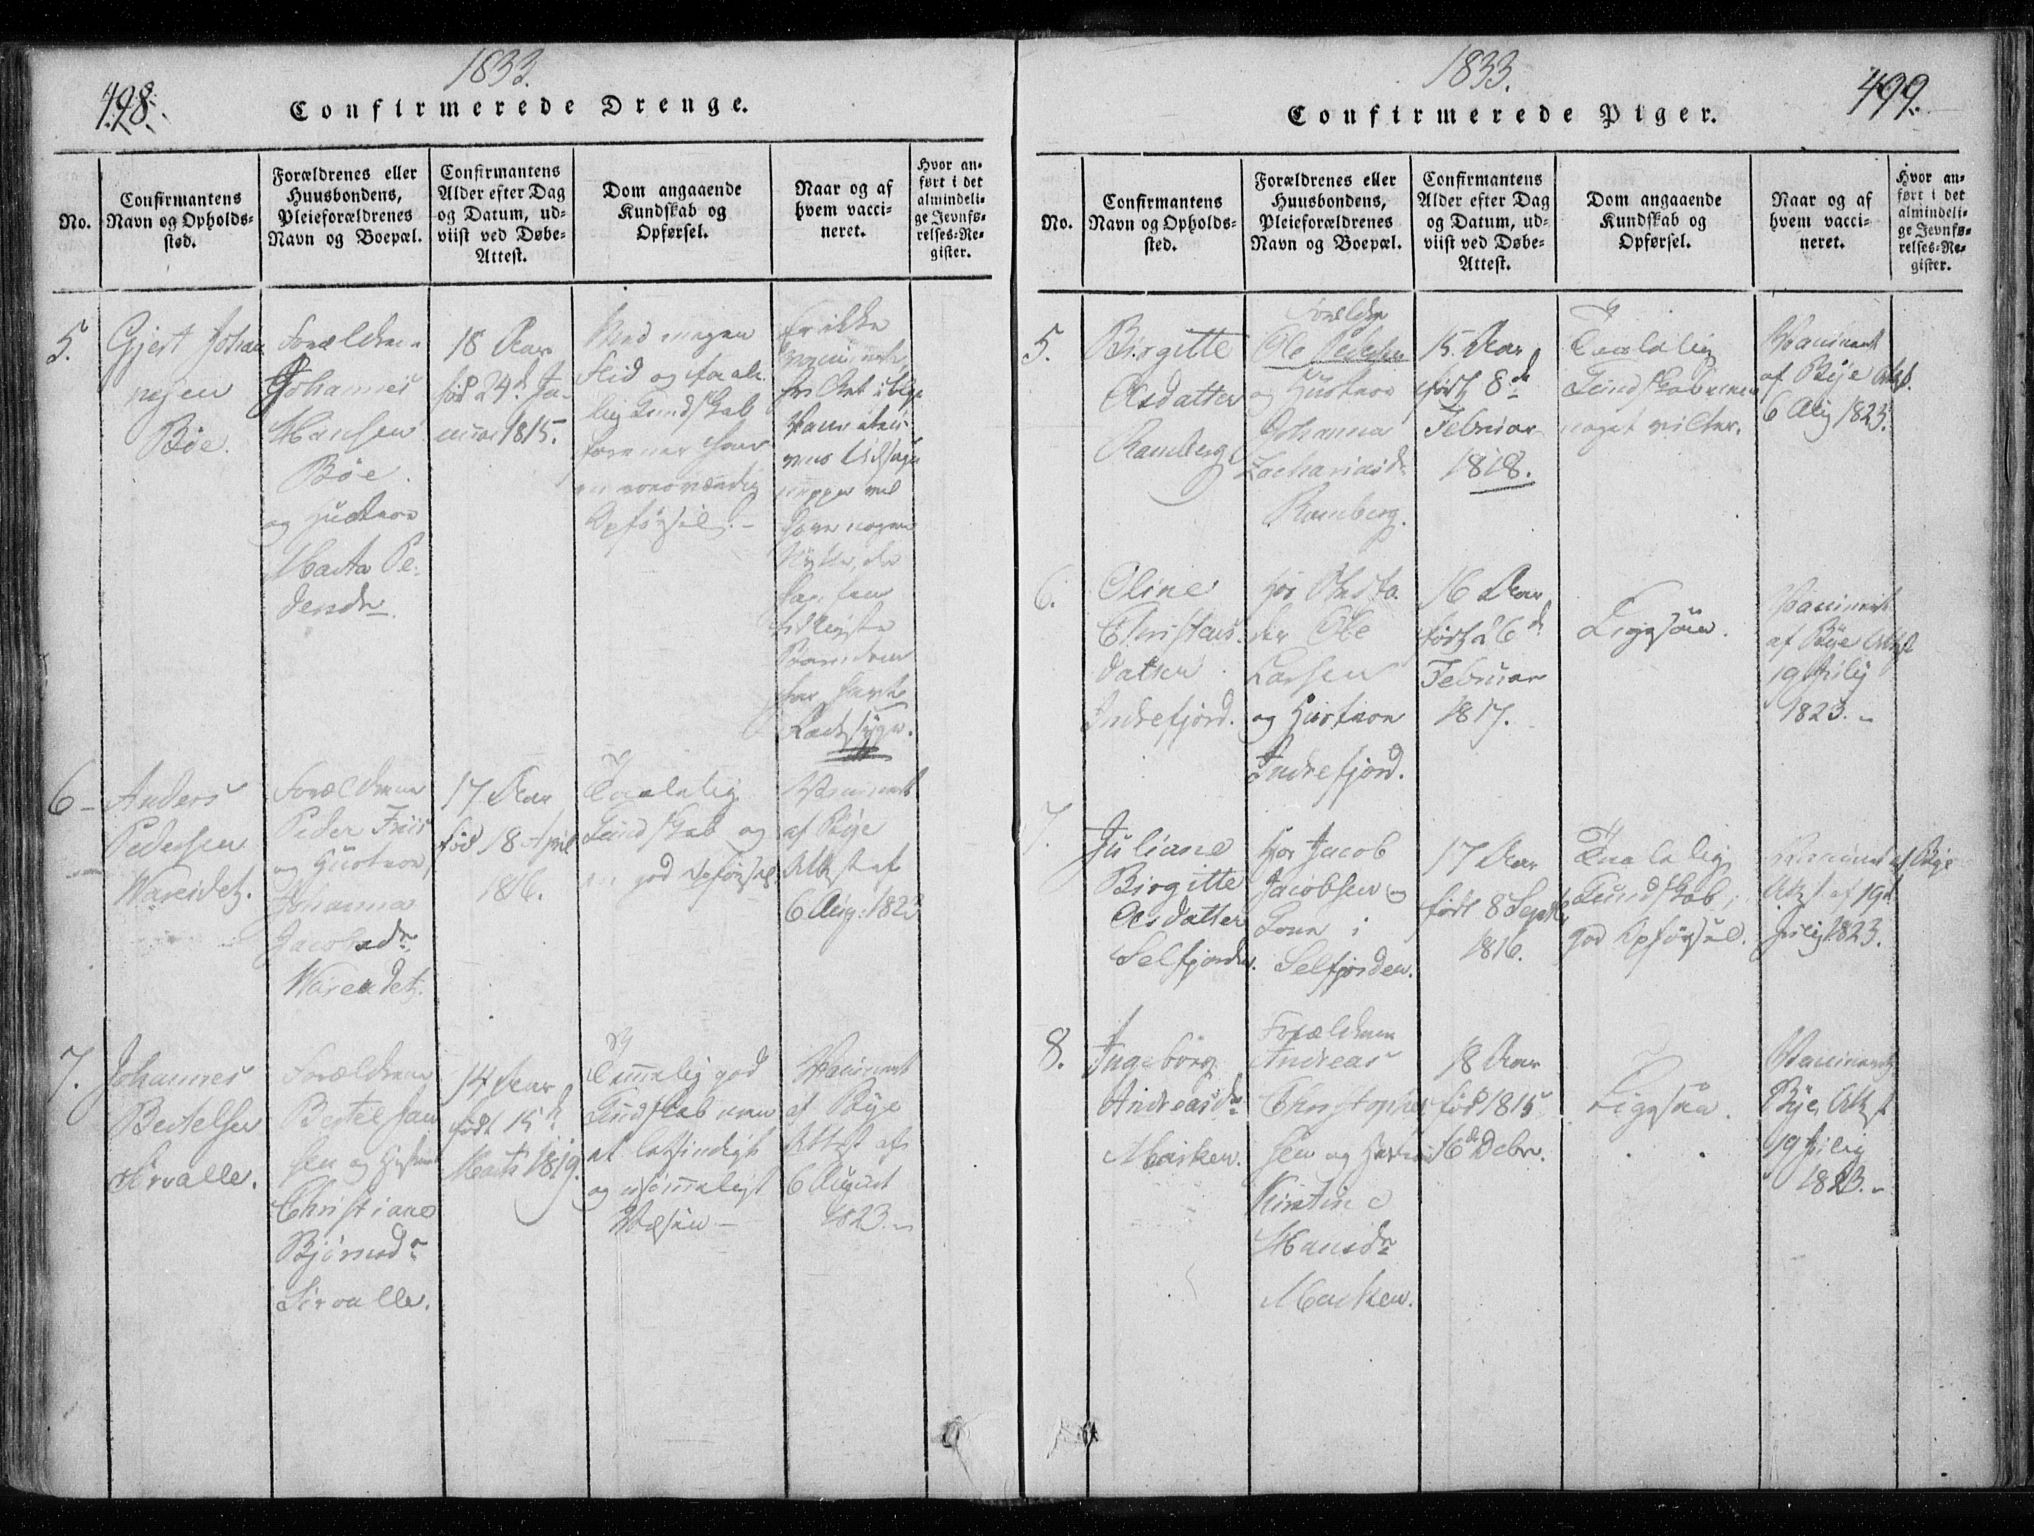 1833.
498.
Confirmerede Drenge.
No.
Confirmantens
Navn og Opholds-
sted.
Forældrenes eller
Huusbondens,
Pleieforældrenes
Navn og Boepæl.
Confirmantens
Alder efter Dag
og Datum, ud-
viist ved Døbe-
Attest.
Dom angaaende
Kundskab og
Opførsel.
Naar og af
hvem vacci-
neret.
Hvor an-
ført i det
almindeli-
ge Jevnfø-
relses-Re-
gister.
5.
Gjert Johan
nesen
Böe.
Forældrene
Johannes
Hansen
Böe.
og Hustrue
Marta Pe-
dersdr
18 Aar
fød 24de Ja-
nuar 1815.
Med megen
Flid og
Kundskab
Opförsel.
Er ikke
Radesyge.
6
Anders
Pedersen
Wareidet.
Forældrene
Peder Friis
og Hustrue,
Johanna
Jacobsdr
Wareidet.
17 Aar
fød 18 April
1816.
Taalelig
Kundskab og
god Opförsel.
Vaccineret
af Bye
Attest af
6 Aug: 1823
7.
Johannes
Bertelsen
Sirvalle.
Forældrene
Bertel Han
sen og Hustrue
Christiane
Björnsdr
Sirvalle.
14 Aar
født 15de
Marts 1819.
Temmelig god
Kundskab men
et letsindigt
og usømmeligt
Væsen
Vaccineret
af Bye
Attest af
6 August
1823.
1833.
499.
Confirmerede Piger.
No.
Confirmantens
Navn og Opholds-
sted.
Forældrenes eller
Huusbondens,
Pleieforældrenes
Navn og Boepæl.
Confirmantens
Alder efter Dag
og Datum, ud-
viist ved Døbe-
Attest.
Dom angaaende
Kundskab og
Opførsel.
Naar og af
hvem vacci-
neret.
Hvor an-
ført i det
almindeli-
ge Jevnfø-
relses-Re-
gister.
5.
Birgitte
Olsdatter
Ramberg
Forældre
Ole Pedersen
og Hustrue
Johanna
Zachariasdr
Ramberg.
15. Aar
født 8de
Februar
1818.
Taalelig
Kundskab men
noget vilter.
Vaccineret
af Bye Attst.
6 Aug 1823.
6.
Oline
Christens-
datter
Indrefjord.
Hos
Ole
Larsen
og Hustrue
Indrefjord.
16 Aar
født 26de
Februar
1817.
Ligesaa.
Vaccineret
af Bye Attst
19 July
1823.
7.
Juliane
Birgitte
Olsdatter
Selfjorden.
Hos Jacob
Jacobsen og
Kone i
Selfjorden.
17 Aar
født 8 Septb
1816.
Taalelig
Kundskab,
god Opførsel.
Vaccineret af Bye
Attst af 19de
July 1823.
8.
Ingeborg
Andreasdr
Marken.
Forældrene
Andreas
Christopher
sen og Hustrue
Kirstine
Hansdr
Marken.
18 Aar
fød 1815
16de Decbr.
Ligesaa.
Vaccineret
Bye, Attst
19 July
1823.